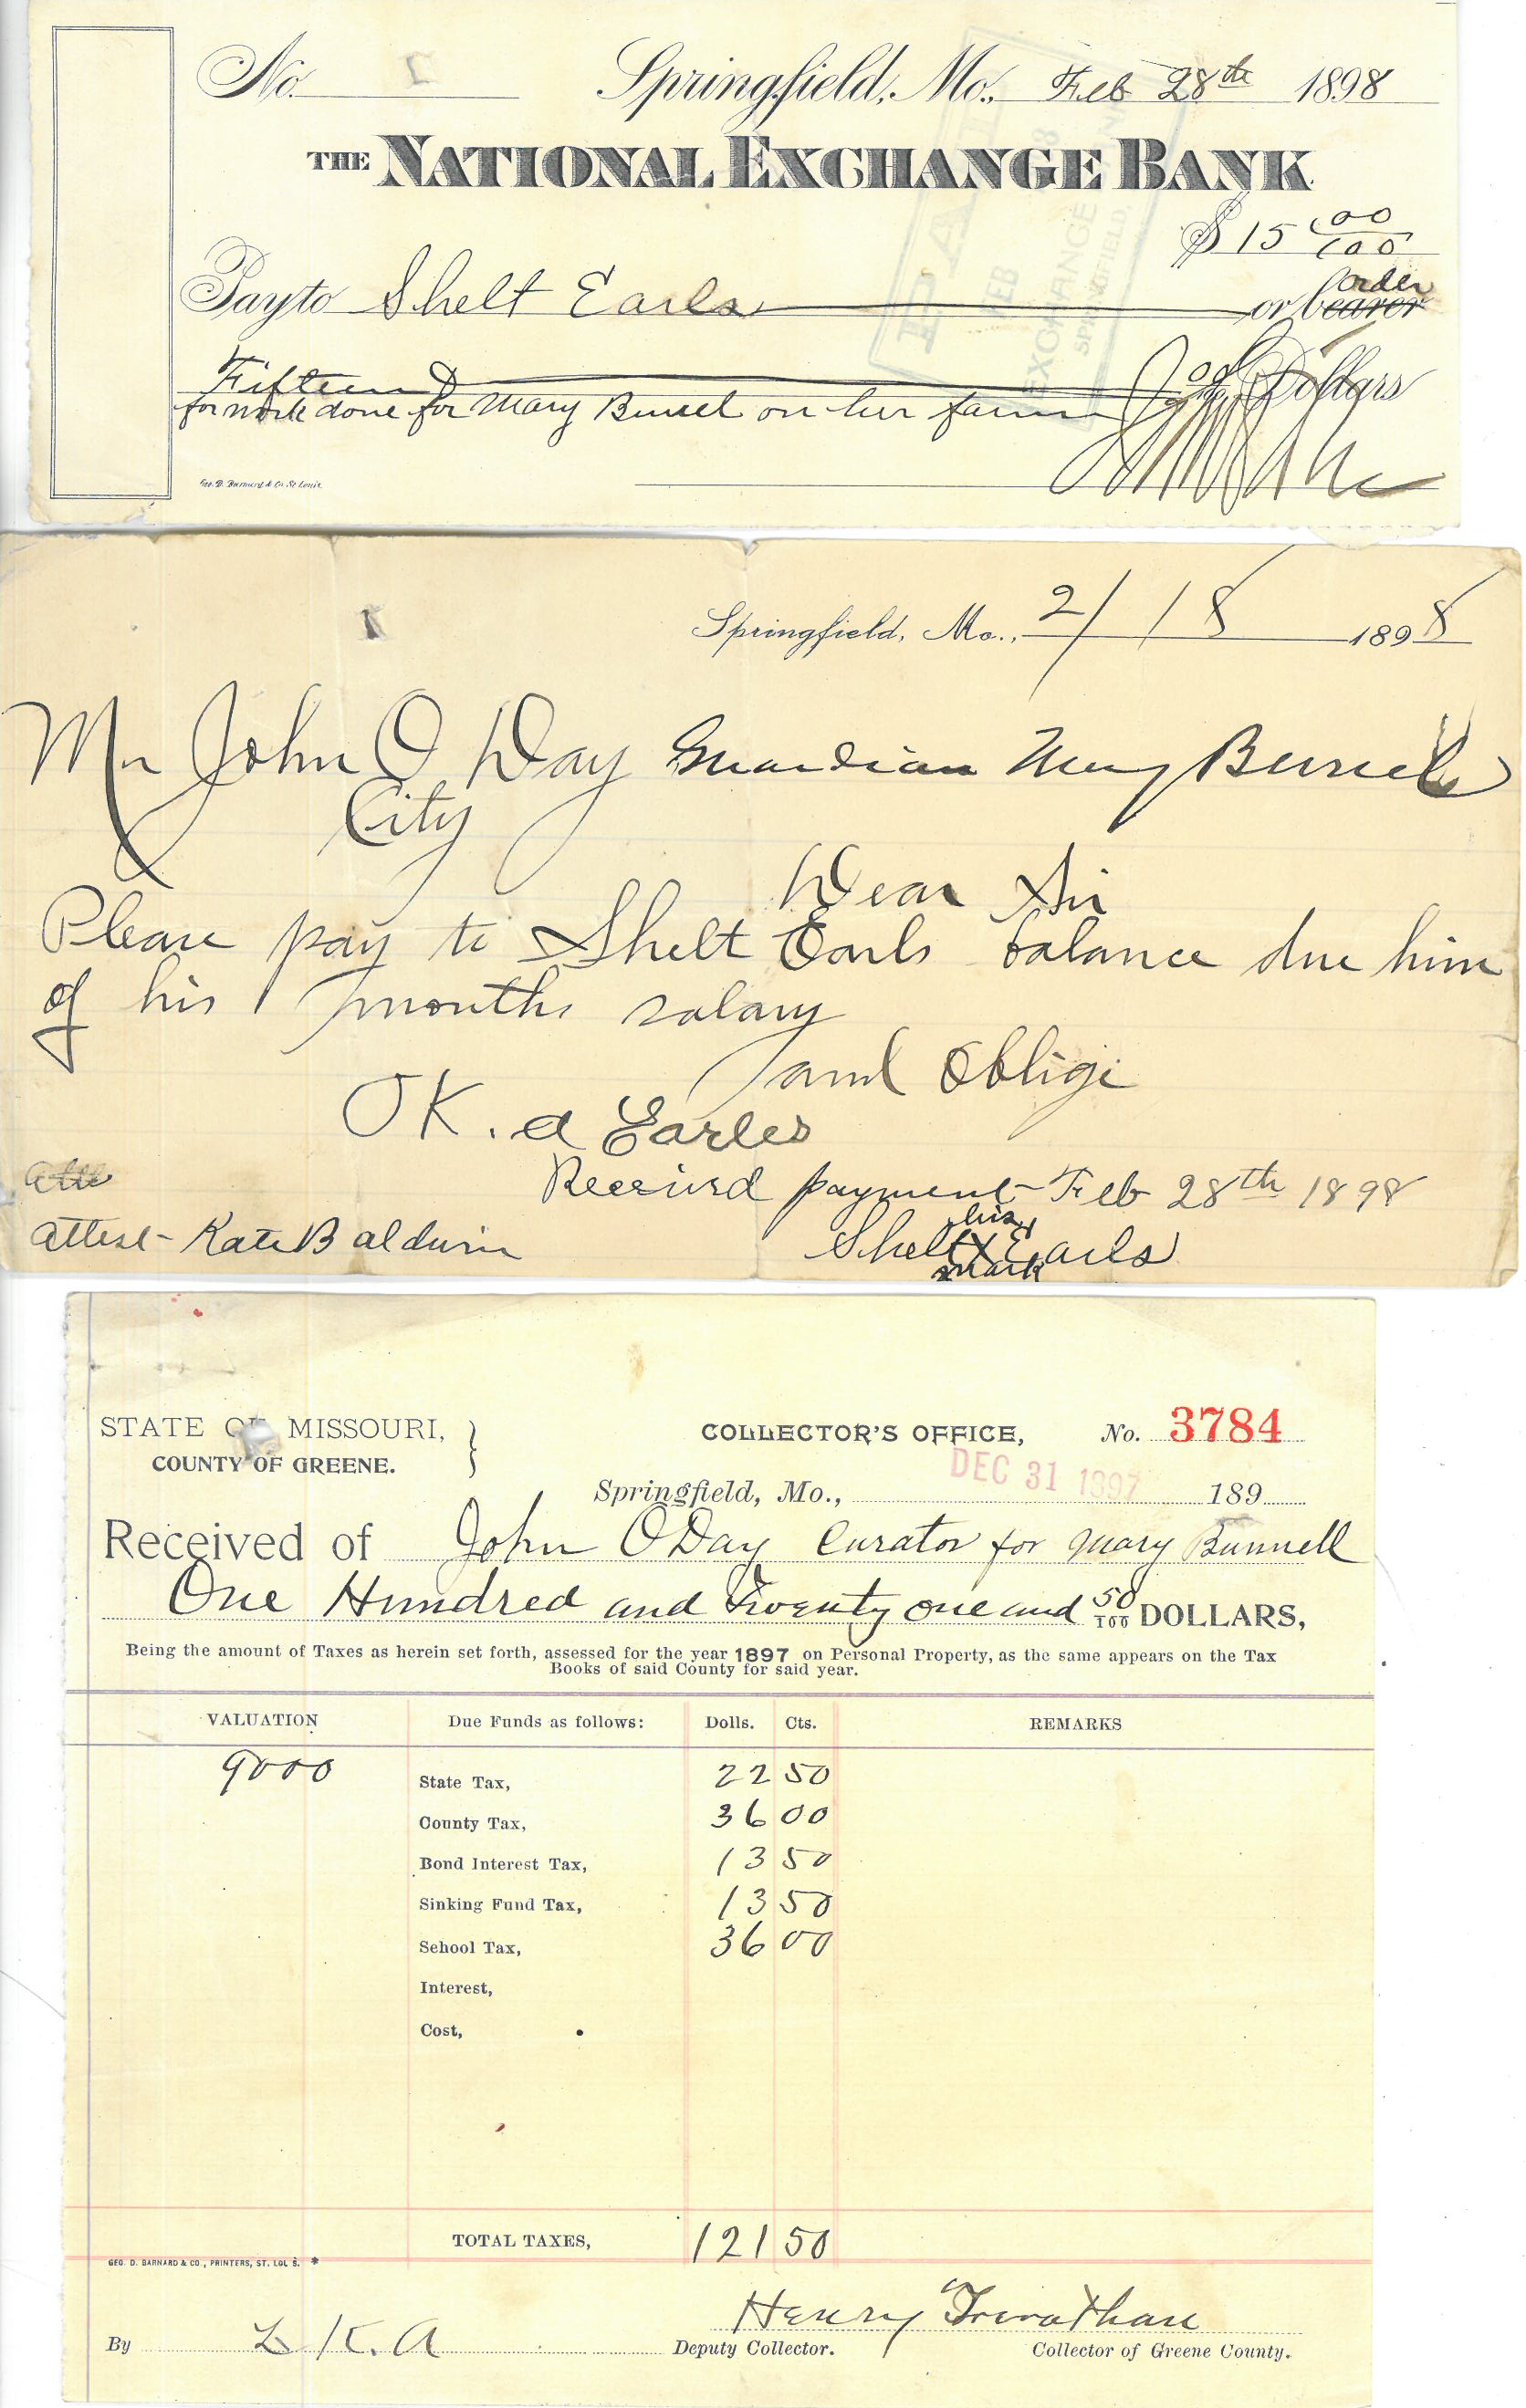 No. Springfield, Mo., Feb 28th 1898
THE NATIONAL EXCHANGE BANK
$15 00/100
order
Pay to Shelt Earls or bearer
Fifteen Dollars
for work done for Mary Bunel on her farm
Geo. D. Barnard & Co. St. Louis
PAID
FEB
EXCHANGE
SPRINGFIELD,
Springfield, Mo., 2/18 1898
Mr John O Day Guardian Mary Bunel
City
Dear Sir
Please pay to Shelt Earls balance due him
of his 1 months salary
and oblige
OK. a Earles
Atte
Received payment Feb 28th 1898
his
attest - Kate Baldwin Shelt X Earls
mark
STATE OF MISSOURI, } COLLECTOR'S OFFICE, No. 3784
COUNTY OF GREENE.
DEC 31 1897
Springfield, Mo., 189
Received of John O Day Curator for Mary Bunnell
One Hundred and Twenty one and 50/100 DOLLARS,
Being the amount of Taxes as herein set forth, assessed for the year 1897 on Personal Property, as the same appears on the Tax
Books of said County for said year.
VALUATION Due Funds as follows: Dolls. Cts. REMARKS
9000 State Tax, 22 50
County Tax, 36 00
Bond Interest Tax, 13 50
Sinking Fund Tax, 13 50
School Tax, 36 00
Interest,
Cost,
TOTAL TAXES, 121 50
GEO. D. BARNARD & CO., PRINTERS, ST. LOUIS. *
Henry Trevathan
By L K. A Deputy Collector. Collector of Greene County.